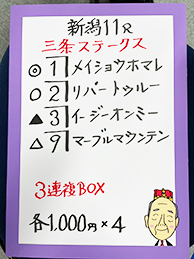 新潟11R
三条ステークス
◎1メイショウホマレ
○2リバートゥルー
▲3イージーオンミー
△9マーブルマウンテン
3連複BOX
各1,000円×4